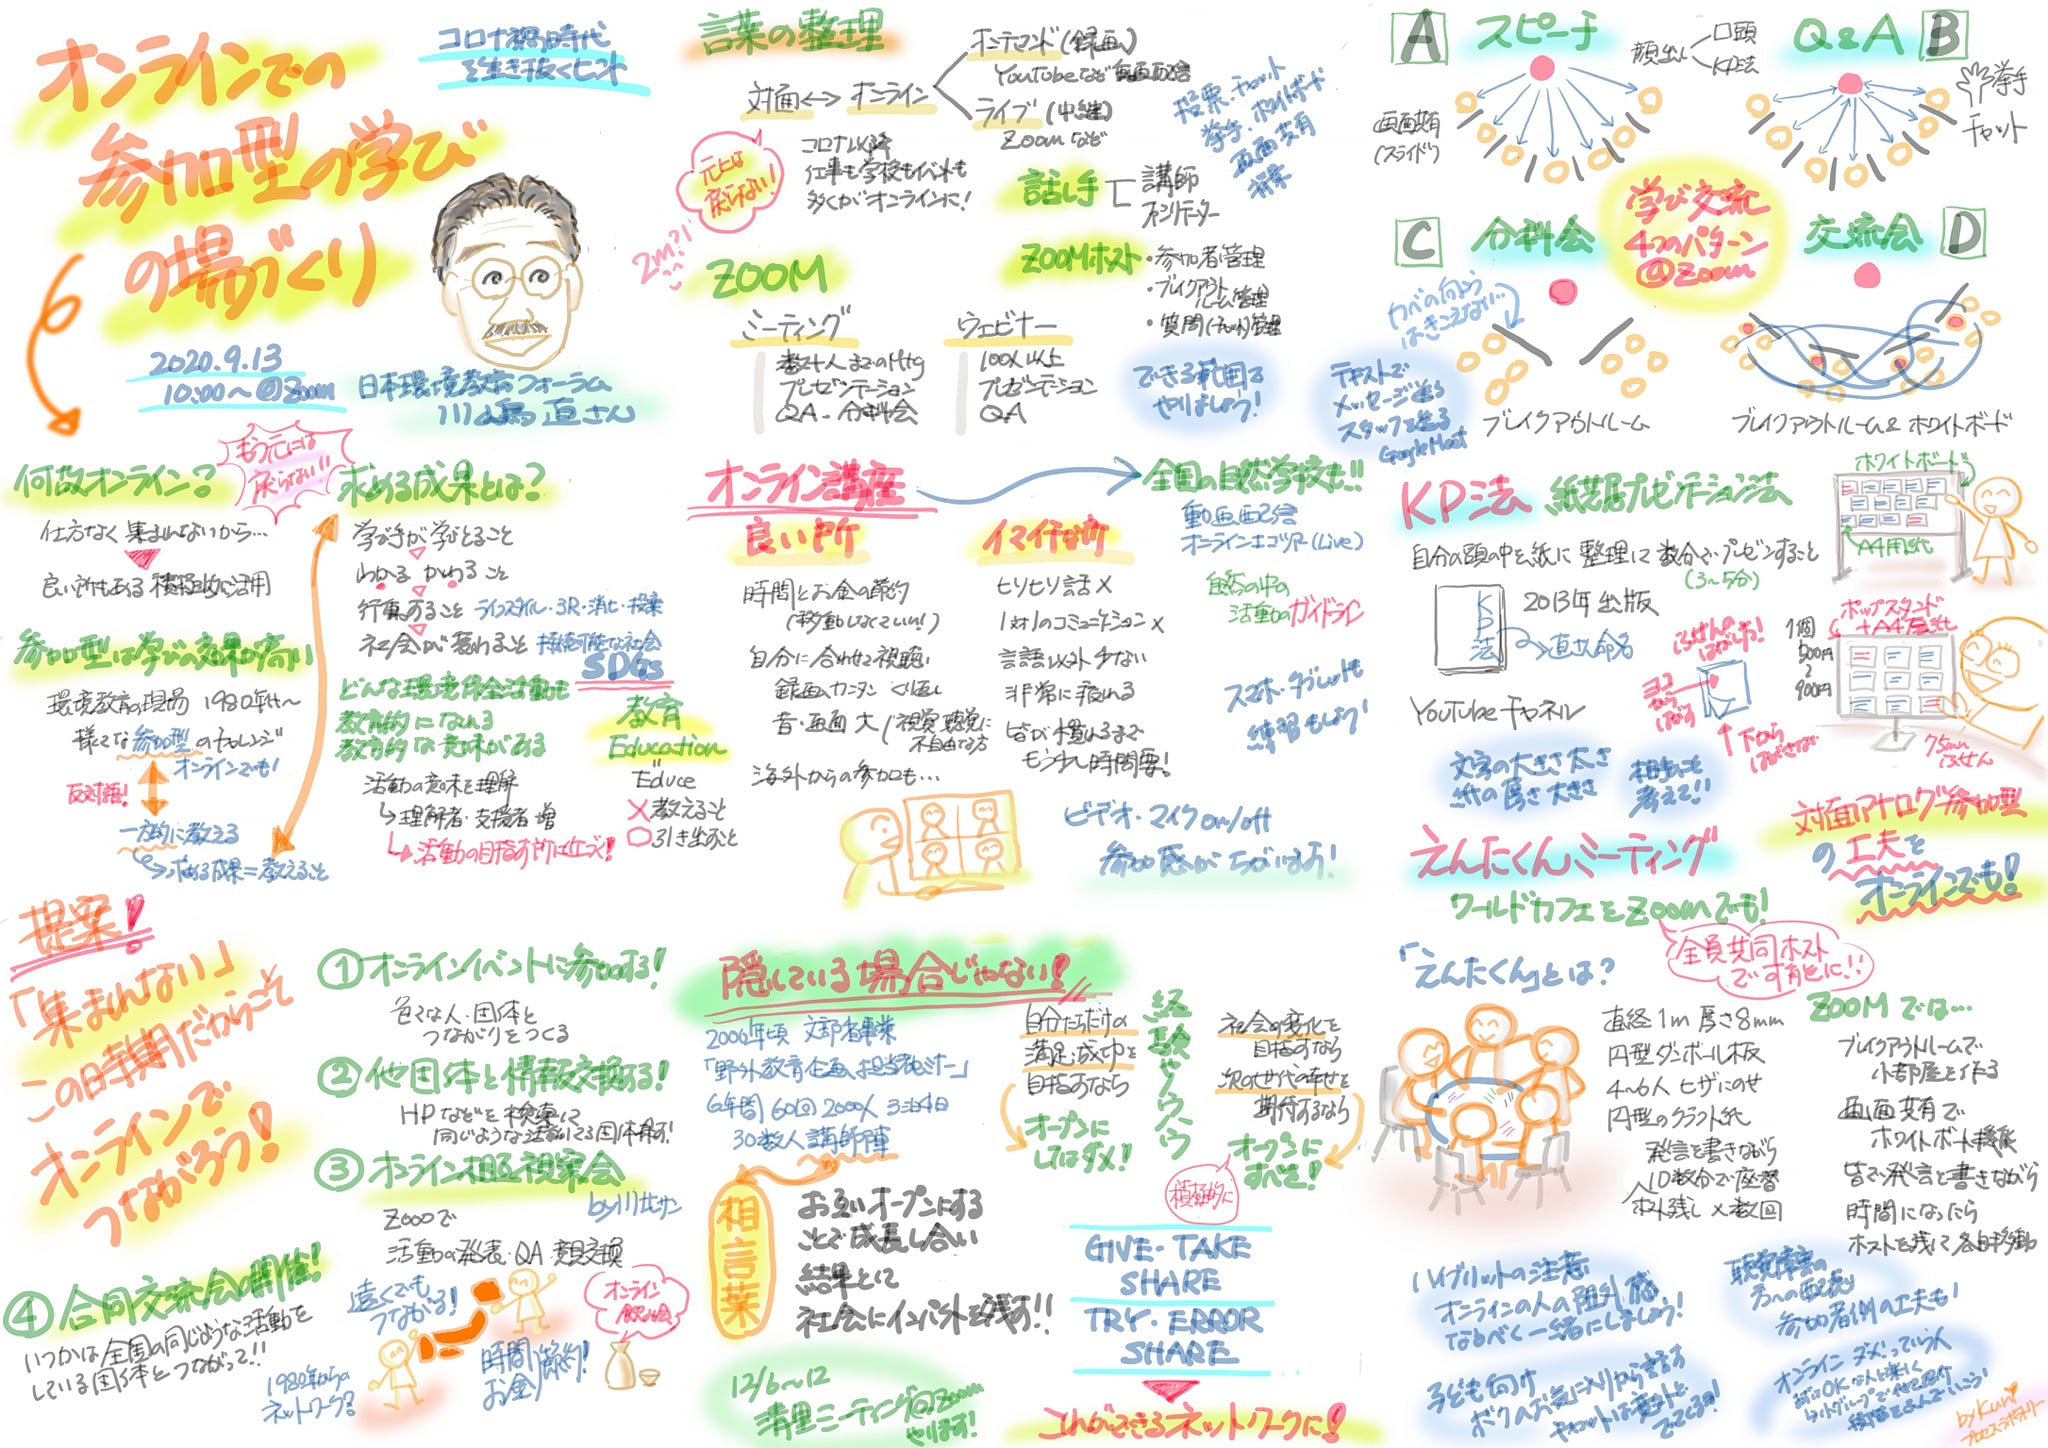 オンラインでの
参加型の学び
の場づくり
コロナ禍時代
を生き抜くヒント
2020.9.13
10:00〜@Zoom
日本環境教育フォーラム
川嶋直さん
何故オンライン?
もう元には
戻らない!!
仕方なく集まれないから…
良い所もある 積極的に活用
参加型は学びの効果が高い
環境教育の現場 1980年代〜
様々な参加型のチャレンジ
オンラインでも!
反対語!
一方的に教える
求める成果=教えること
求める成果とは?
学び手が学びとること
わかる かわること
行動すること ライフスタイル・3R・消費・投票
社会が変わること 持続可能な社会
SDGs
どんな環境保全活動も
教育的になれる
教育的な意味がある
活動の意味を理解
理解者・支援者増
活動の目指す所に近づく!
教育
Education
Educe
×教えること
○引き出すこと
言葉の整理
対面↔オンライン
オンデマンド(録画)
YouTubeなど動画配信
ライブ(中継)
Zoomなど
投票・チャット
挙手・ホワイトボード
画面共有
元には
戻らない!
2m?!
コロナ以降
仕事も学校もイベントも
多くがオンラインに!
話し手
講師
ファシリテーター
ZOOM
ZOOMホスト
・参加者管理
・ブレイクアウト
ルーム管理
・質問(チャット)管理
ミーティング
数十人までのMtg
プレゼンテーション
QA・分科会
ウェビナー
100人以上
プレゼンテーション
QA
できる範囲で
やりましょう!
オンライン講座
良い所
時間とお金の節約
(移動しなくていい!)
自分に合わせて視聴
録画カンタン くり返し
音・画面 大/視覚・聴覚に
不自由な方
海外からの参加も…
イマイチな所
ヒソヒソ話×
1対1のコミュニケーション×
言語以外少ない
非常に疲れる
皆が慣れるまで
もう少し時間要!
全国の自然学校も!!
動画配信
オンラインエコツアー(Live)
自然の中の
活動のガイドライン
スマホ・タブレットも
練習しよう!
ビデオ・マイクon/off
参加感がちがいます!
A スピーチ
顔出し
口頭
KP法
画面共有
(スライド)
Q&A B
挙手
チャット
学び交流
4つのパターン
@Zoom
C 分科会
カベの向こう
はきこえない…
ブレイクアウトルーム
交流会 D
ブレイクアウトルーム&ホワイトボード
テキストで
メッセージ送る
スタッフを送る
Google Meet
KP法 紙芝居プレゼンテーション法
自分の頭の中を紙に整理して数分でプレゼンすること
(3〜5分)
KP法
2013年出版
直さん命名
YouTubeチャンネル
文字の大きさ 太さ
紙の厚さ 大きさ
相手のこと
考えて!!
ホワイトボード
A4用紙
ふせんの
はがし方!
ヨコからはがす
下から
はがさない
ポップスタンド
+A4用紙
1個
75mm
ふせん
えんたくんミーティング
ワールドカフェをZoomでも!
対面アナログ参加型
の工夫を
オンラインでも!
「えんたくん」とは?
全員共同ホスト
です前に!!
直径1m 厚さ8mm
円型ダンボール板
4〜6人 ヒザにのせ
円型のクラフト紙
発言を書きながら
10数分で座替
ホスト残し×数回
ZOOMでは…
ブレイクアウトルームで
小部屋を作る
画面共有で
ホワイトボード機能
皆で発言を書きながら
時間になったら
ホストを残して各自移動
ハイブリットの注意
オンラインの人の阻外感
なるべく一緒にしましょう!
聴覚障害の
方への配慮
参加者側の工夫も!
子ども向け
オンライン ダメっていう人
by Kuni
プロセスラボラトリー
提案!
「集まれない」
この時期だからこそ
オンラインで
つながろう!
①オンラインイベントに参加する!
色々な人・団体と
つながりをつくる
②他団体と情報交換する!
HPなどを検索して
同じような活動してる団体探す!
③オンライン相互視察会
Zoooで
活動の発表・QA・意見交換
④合同交流会の開催!
いつかは全国の同じような活動を
している団体とつながって!!
遠くでも
つながる!
時間節約!
お金
オンライン
飲み会
1980年からの
ネットワーク?
隠している場合じゃない!
2000年頃 文部省事業
「野外教育企画担当者セミナー」
6年間 60回 2000人 3泊4日
30数人講師陣
相言葉
お互いオープンにする
ことで成長し合い
結果として
社会にインパクトを残す!!
経験やノウハウ
自分たちだけの
満足・成功を
目指すなら
オープンに
してはダメ!
社会の変化を
目指すなら
次の世代の幸せを
期待するなら
オープンに
すべき!
積極的に
GIVE・TAKE
SHARE
TRY・ERROR
SHARE
これができるネットワークに!
12/6〜12
清里ミーティング@Zoom
やります!